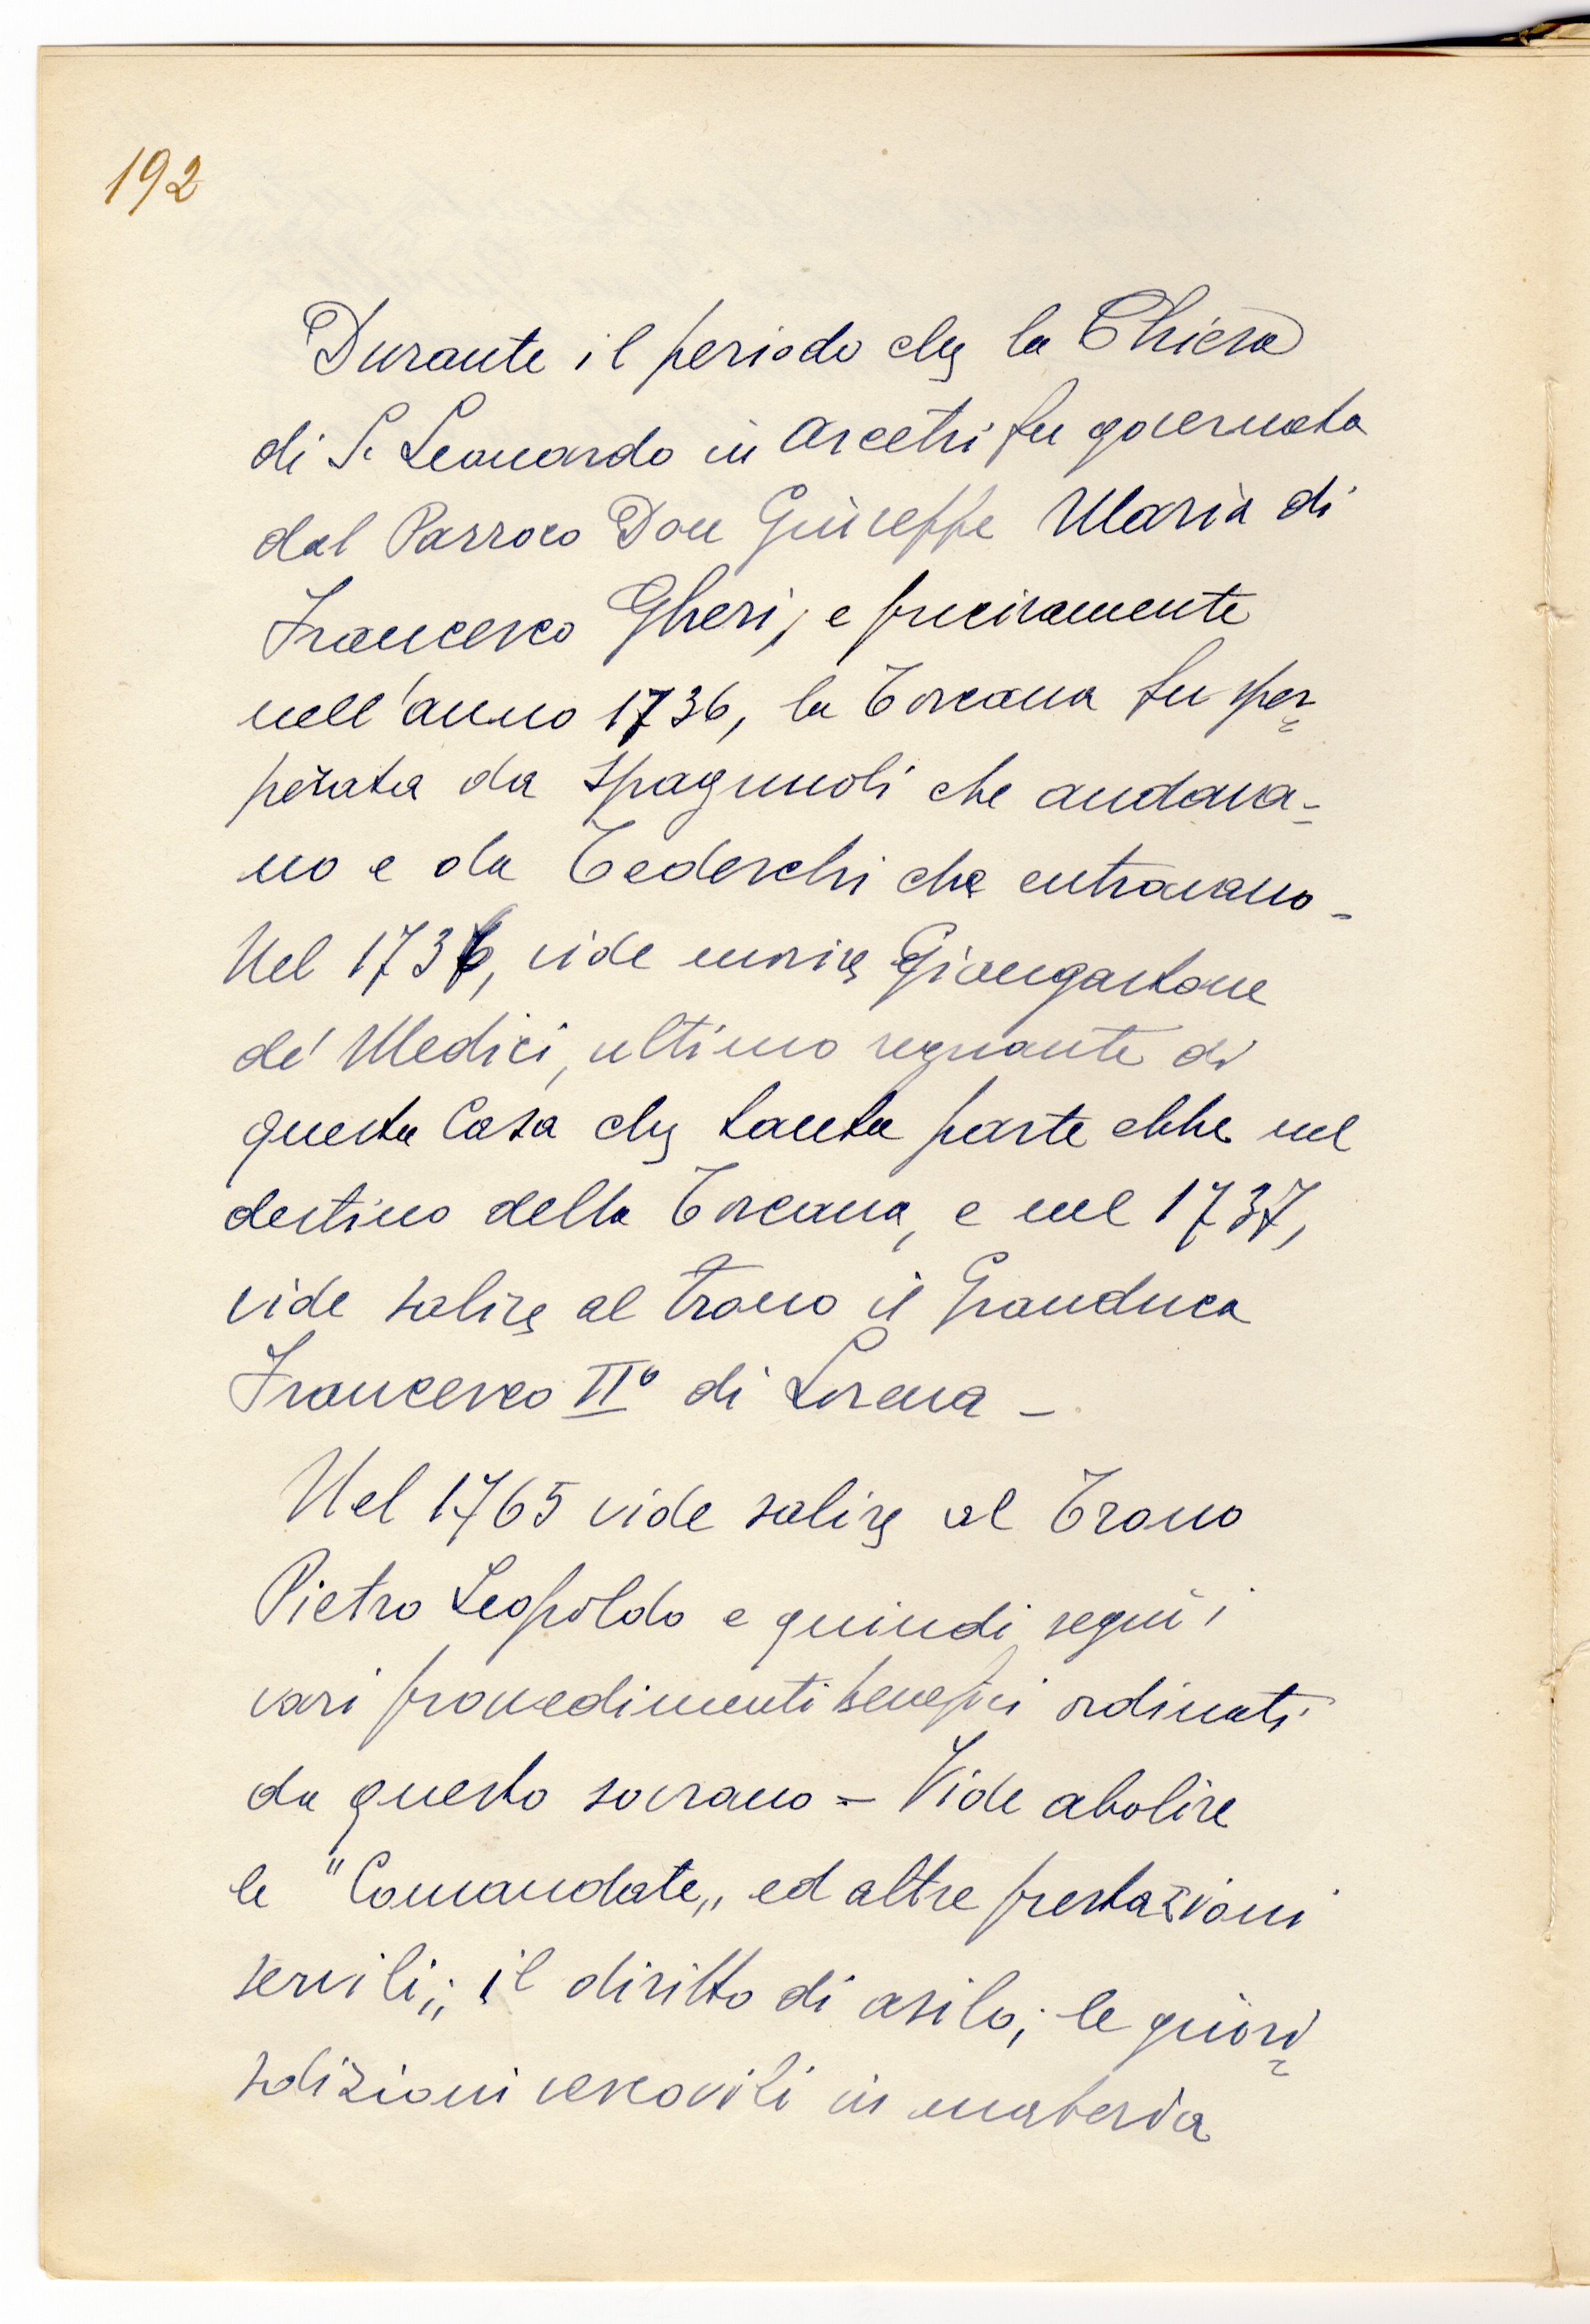 192
Durante il periodo che la Chiesa
di S. Leonardo in Arcetri fu governata
dal Parroco Don Giuseppe Maria di
Francesco Gheri, e precisamente
nell'anno 1736, la Toscana fu sper=
perata da Spagnuoli che andava=
no e da Tedeschi che entravano -
Nel 1737, vide morire Giangastone
de' Medici, ultimo regnante di
questa Casa che tanta parte ebbe nel
destino della Toscana, e nel 1737,
vide salire al trono il Granduca
Francesco II° di Lorena -
Nel 1765 vide salire al Trono
Pietro Leopoldo e quindi seguì i
vari provvedimenti benefici ordinati
da questo sovrano = Vide abolire
le "Comandate„ ed altre prestazioni
servili„; il diritto di asilo; le giuri=
sdizioni vescovili in materia